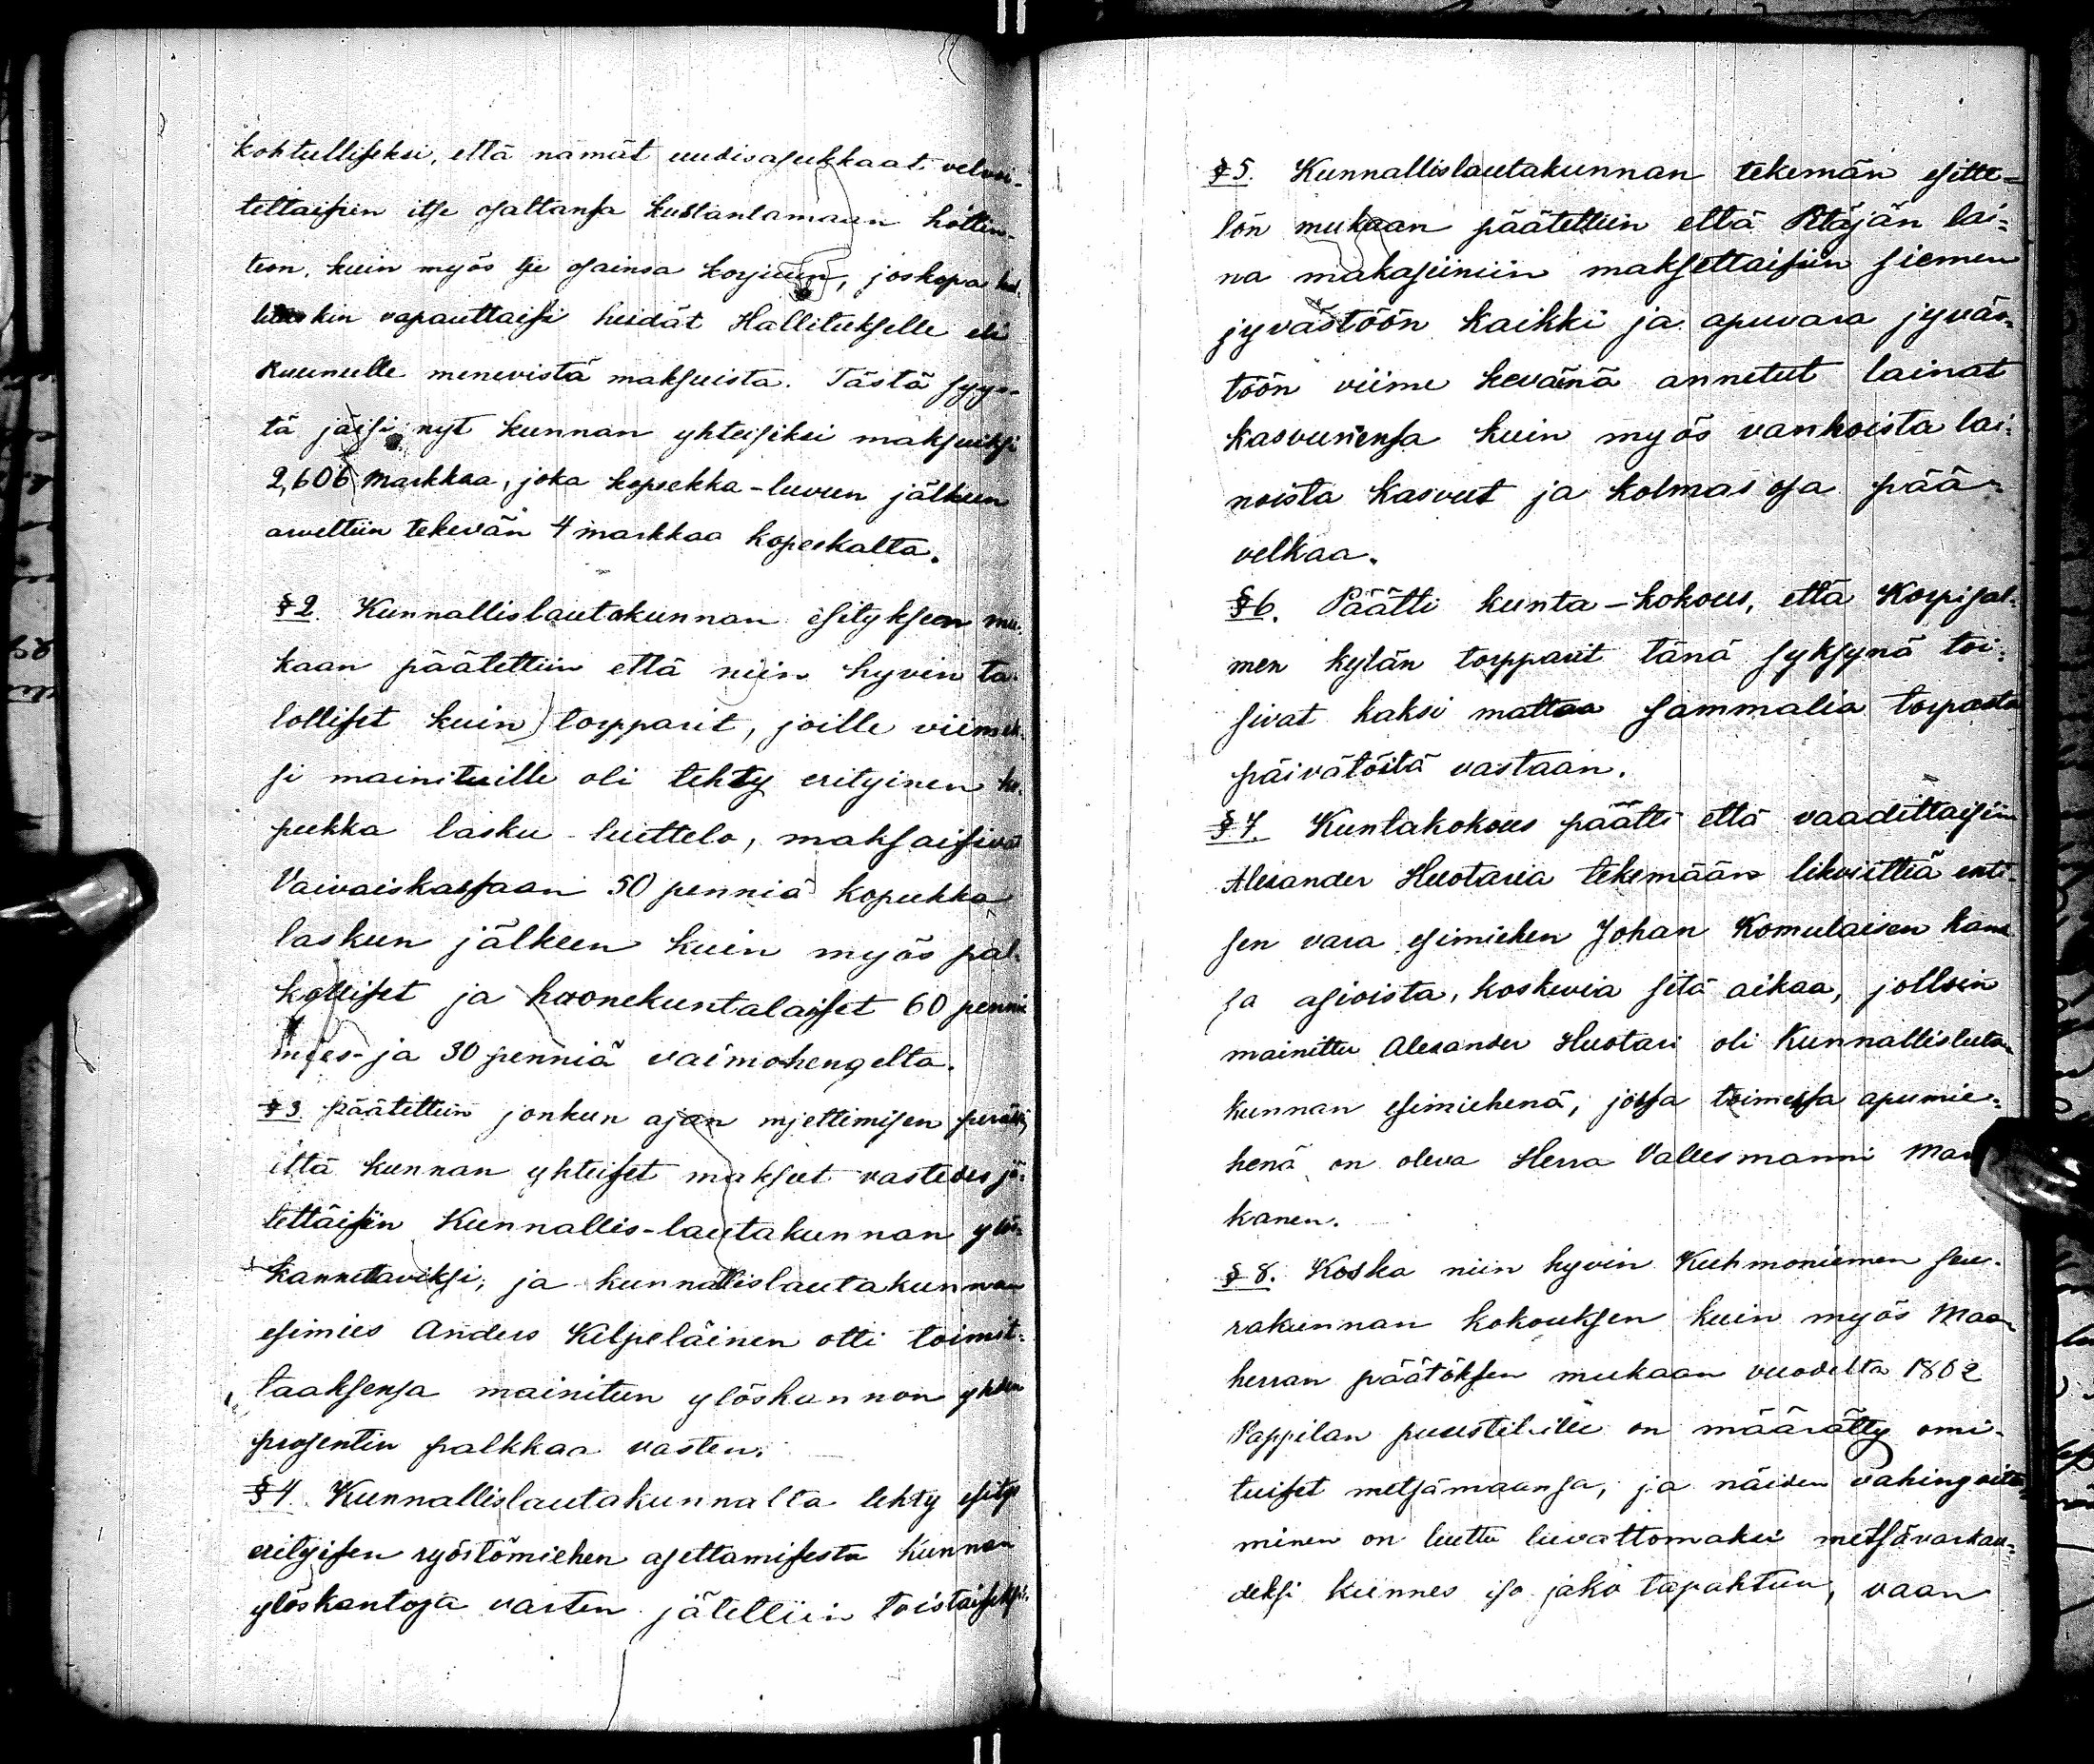 kohtulliseksi, että nämät uudisasukkaat velvoi-
tettaisiin itse osaltansa kustantamaan hättin-
teon, kuin myös itse osainsa korjuun, joskopa
kin vapauttaisi heidät Hallitukselle eli
Ruunulle menevistä maksuista. Tästä syys-
tä jäisi nyt kunnan yhteiseksi maksuiksi
2,606 markkaa, joka kopeekka-luvun jälkeen
arveltiin tekevän 4 markkaa kopeekalta.
§2. Kunnallislautakunnan esityksen mu-
kaan päätettiin että niin hyvin ta-
lolliset kuin torpparit, joille viimek-
si mainituille oli tehty erityinen ko-
pukka lasku-luettelo, maksaisivat
Vaivaiskassaan 50 penniä kopukka
laskun jälkeen kuin myös pal-
kolliset ja huonekuntalaiset 60 penniä
mies- ja 30 penniä vaimohengelta.
§3. päätettiin jonkun ajan mjettimisen perästä
että kunnan yhteiset maksut vastedes jä-
tettäisiin Kunnallis-lautakunnan ylös-
kannettaviksi, ja kunnallislautakunnan
esimies Anders Kilpeläinen otti toimit-
taaksensa mainitun ylöskannon yhden
prosentin palkkaa vasten.
§4. Kunnallislautakunnalta tehty esitys
erityisen ryöstömiehen asettamisesta Kunnan
ylöskantoja varten jätettiin toistaiseksi.
§5. Kunnallislautakunnan tekemän esitte-
lön mukaan päätettiin että Pitäjän lai-
na makasiiniin maksettaisiin siemen
jyvästöön kaikki ja apuvara jyväs-
töön viime keväänä annetut lainat
kasvunensa kuin myös vanhoista lai-
noista kasvut ja kolmas osa pää-
velkaa.
§6. Päätti kunta-kokous, että Korpisal-
men kylän torpparit tänä syksynä toi-
sivat kaksi mattaa sammalia torpasta
päivätöitä vastaan.
§7. Kuntakokous päätti että vaadittaisiin
Alexander Huotaria tekemään likvittiä enti-
sen vara esimiehen Johan Komulaisen kans-
sa asioista, koskevia sitä aikaa, jolloin
mainittu Alexander Huotari oli Kunnallislauta-
kunnan esimiehenä, jossa toimessa apumie-
henä on oleva Herra Vallesmanni
kanen.
§8. Koska niin hyvin Kuhmoniemen seu-
rakunnan kokouksen kuin myös Maan-
herran päätöksen mukaan vuodelta 1862
Pappilan puustellille on määrätty omi-
tuiset metsämaansa, ja näiden vahingoitta-
minen on luettu luvattomaksi metsävarkau-
deksi kunnes iso jako tapahtuu, vaan